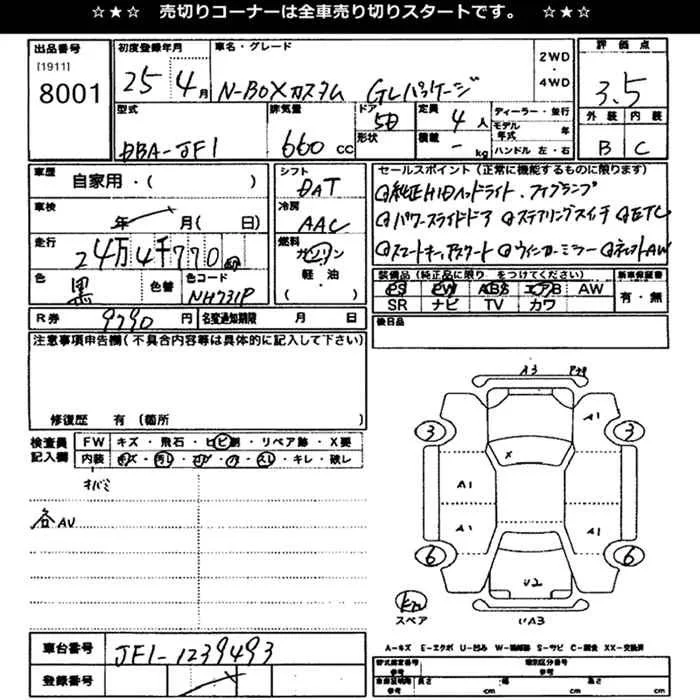 ☆★☆ 売切りコーナーは全車売り切りスタートです。 ☆★☆
出品番号
[1911]
8001
初度登録年月
25 4月
車名・グレード
N-BOXカスタム GLパッケージ
2WD
・
4WD
評価点
3.5
外装 内装
B C
型式
DBA-JF1
排気量
660 cc
ドア
5D
形状
定員
4人
積載
- kg
ディーラー・並行
モデル年式 年
ハンドル 左・右
車歴
自家用・( )
シフト
DAT
セールスポイント(正常に機能するものに限ります)
純正HIDヘッドライト・フォグランプ
パワースライドドア ステアリングスイッチ ETC
スマートキー ウィンカーミラー AW
車検
年 月( 日)
冷房
AAC
走行
24万4千770
燃料
ガソリン
軽・油
( )
色
黒
色替
色コード
NH731P
装備品(純正品に限り をつけてください)
PS PW ABS エアB AW
SR ナビ TV カワ
新車保証書
有・無
R券
9790円
名変通知期限 月 日
後日品
注意事項申告欄(不具合内容等は具体的に記入して下さい)
修復歴 有(箇所 )
検査員記入欄
FW キズ・飛石・ヒビ割・リペア跡・X要
内装 キズ・汚れ・コゲ・穴・スレ・キレ・破レ
オバミ
各AU
A3
A1
3 3
X
A1
A1 A1
6 6
U2
UA3
スペア
A-キズ E-エクボ U-凹み W-補修跡 S-サビ C-腐食 XX-交換済
車台番号
JF1-1239493
登録番号
型式指定番号 類別区分番号
参考 参考
長さ 幅 高さ
cm cm cm